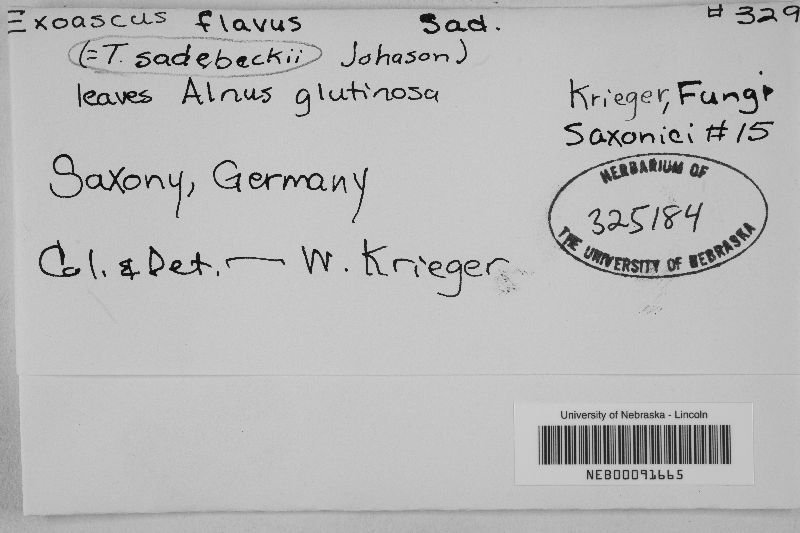 Exoascus flavus Sad. # 329
(=T. sadebeckii Johason)
leaves Alnus glutinosa
Krieger, Fungi
Saxonici # 15
Saxony, Germany
HERBARIUM OF
325184
THE UNIVERSITY OF NEBRASKA
Col. & Det. — W. Krieger
University of Nebraska - Lincoln
NEB00091665